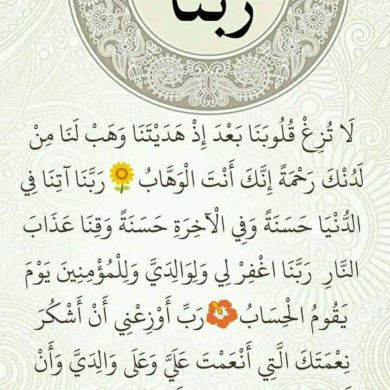 ربنا
لَا تُزِغْ قُلُوبَنَا بَعْدَ إِذْ هَدَيْتَنَا وَهَبْ لَنَا مِنْ
لَدُنْكَ رَحْمَةً إِنَّكَ أَنْتَ الْوَهَّابُ 🌻 رَبَّنَا آتِنَا فِي
الدُّنْيَا حَسَنَةً وَفِي الْآخِرَةِ حَسَنَةً وَقِنَا عَذَابَ
النَّارِ رَبَّنَا اغْفِرْ لِي وَلِوَالِدَيَّ وَلِلْمُؤْمِنِينَ يَوْمَ
يَقُومُ الْحِسَابُ🌺رَبِّ أَوْزِعْنِي أَنْ أَشْكُرَ
نِعْمَتَكَ الَّتِي أَنْعَمْتَ عَلَيَّ وَعَلَى وَالِدَيَّ وَأَنْ